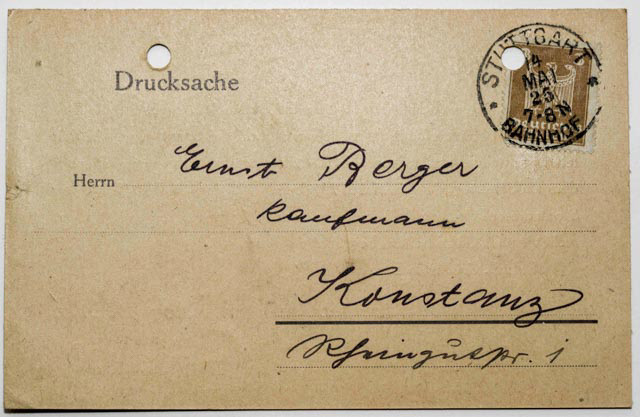 Drucksache
STUTTGART
14
MAI
25
7-8N
BAHNHOF
Herrn Ernst Berger
Kaufmann
Konstanz
Rheingutstr. 1